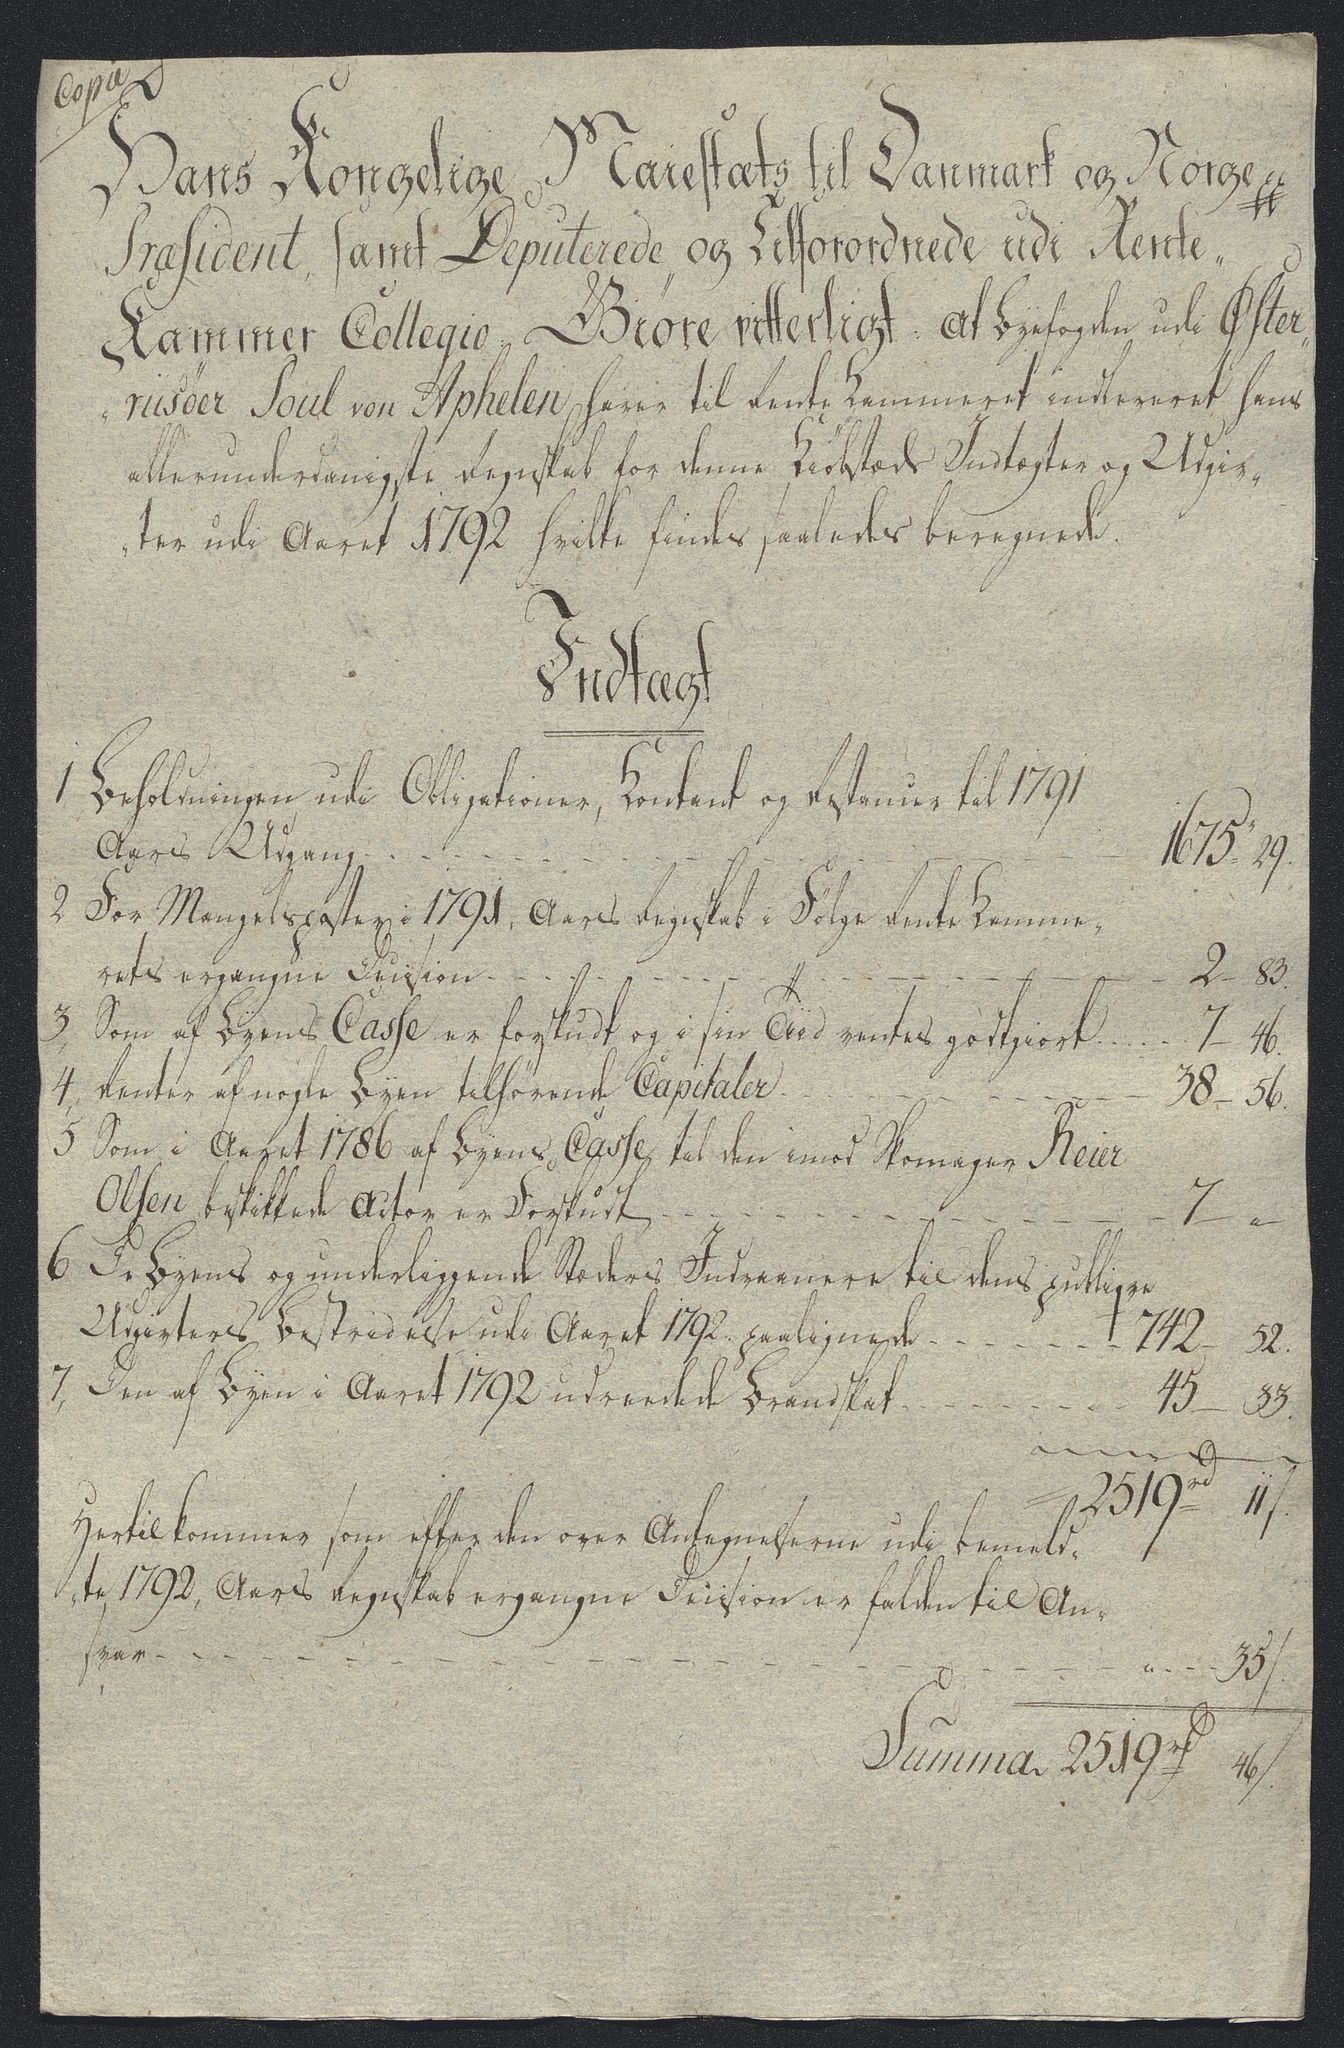 Copia
Hans Kongelige Maiestæts til Danmark og Norge
Præsident, samt Deputerede og Tilforordnede udi Rente-
Kammer Collegio. Giøre vitterligt: at Byefogden udi Øster-
riisöer Povl von Aphelen haver til Rente Kammeret indleveret hans
allerunderdanigste Regnskab for denne Kiöbstæds Indtægter og Udgiv-
ter udi Aaret 1792 hvilke findes saaledes beregnede.
Indtægt
1 Beholdningen udi Obligationer, Contant og Restancer til 1791
Aars Udgang 1675 29.
2 For Mangelsposter i 1791, Aars Regnskab i Fölge Rente Kamme-
rets ergangne Decision 2 83.
3, Som af Byens Casse er forskudt og i sin Tiid ventes godtgiort 7 46.
4, Renter af nogle Byen tilhörende Capitaler 38 56.
5 Som i Aaret 1786 af Byens Casse til den imod Skomager Reier
Olsen beskikkede Actor er Forskudt 7 "
6 De Byens og underliggende Stæders Indvaanere til dens publiqve
Udgivters Bestridelse udi Aaret 1792 paalignede 742 52.
7, Den af Byen i Aaret 1792 udreedede Brandskat 45 33.
2519 rd 11 s.
Hertil kommer som efter den over Antegnelserne udi bemeld-
te 1792, Aars Regnskab ergangne Decision er falden til An-
svar " 35 s.
Summa 2519 rd 46 s.